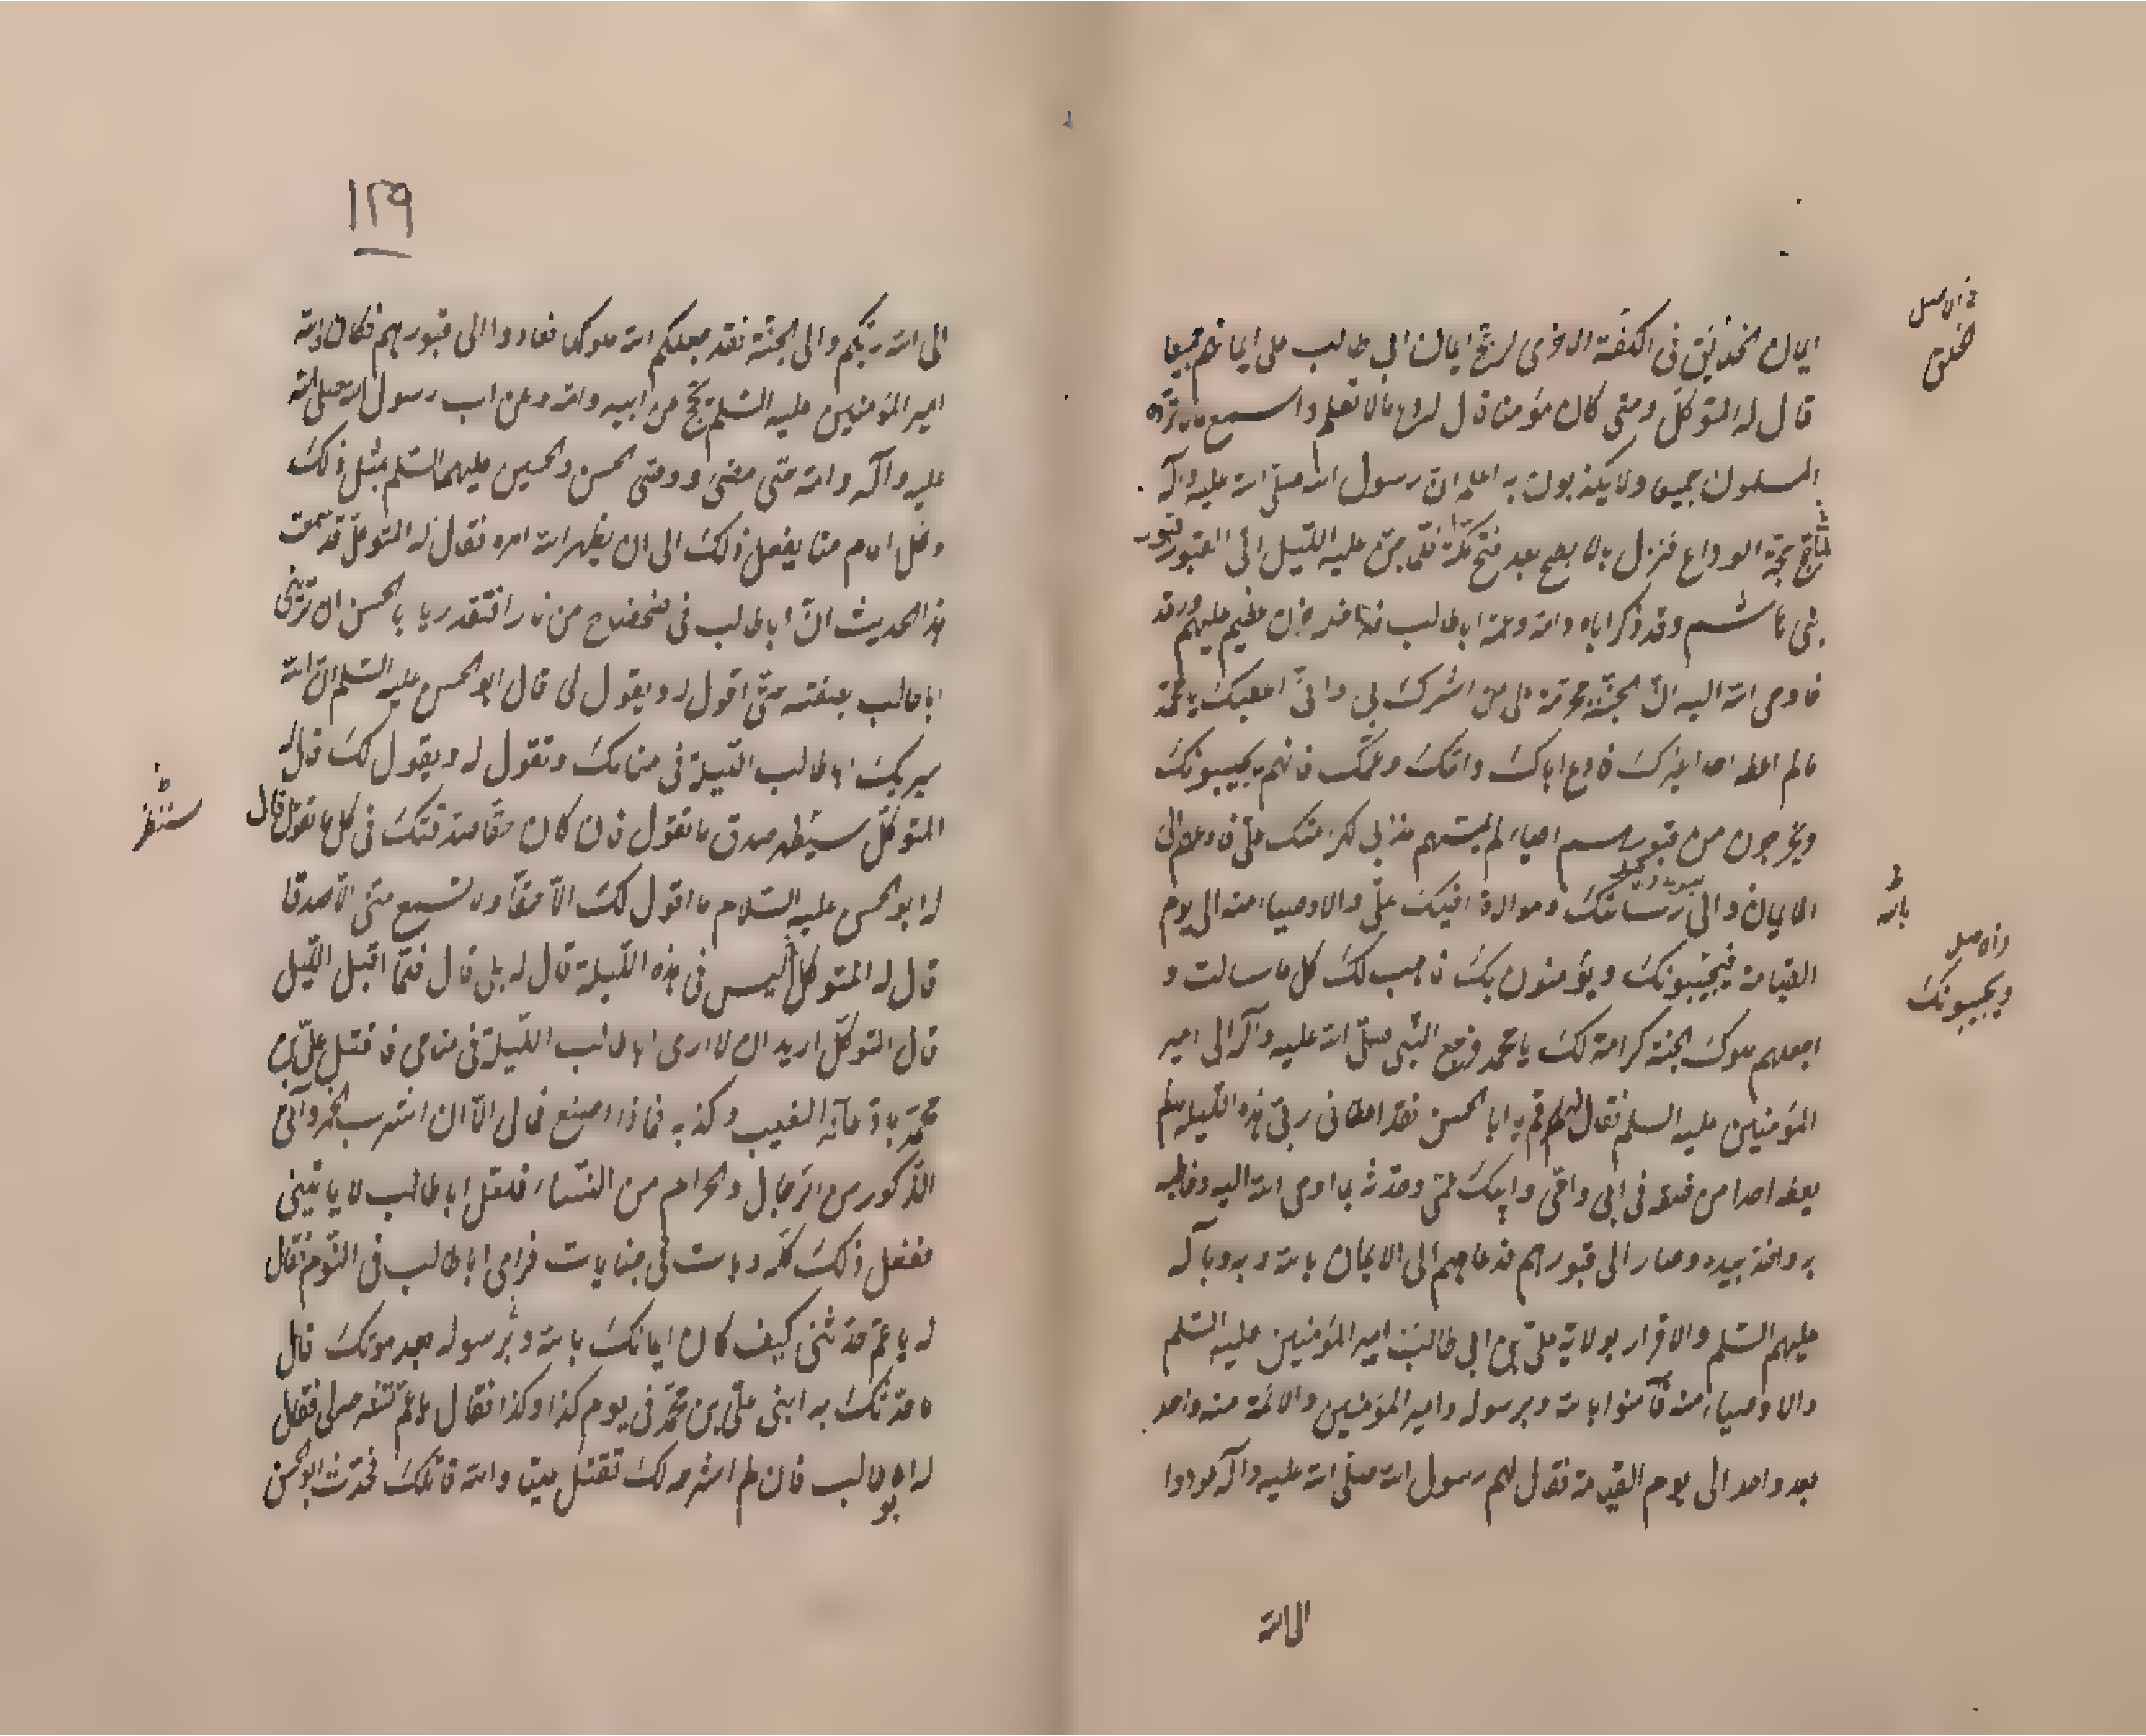 ايمان الخلائق في الكفة الاخرى لرجح ايمان ابي طالب على ايمانهم جميعا
قال له المتوكل ومتى كان مؤمنا قال له دع ما لا تعلم واسمع ما لا ترده
المسلمون جميعا ولا يكذبون به اعلم ان رسول الله صلى الله عليه وآله
حج حجة الوداع فنزل بالابطح بعد فتح مكة فلما جن عليه الليل اتى القبور قبور
بني هاشم وقد ذكر اباه وامه وعمه ابا طالب فداخله حزن عظيم عليهم ورقة
فاوحى الله اليه ان الجنة محرمة على من اشرك بي واني اعطيك يا محمد
ما لم اعطه احدا غيرك فادع اباك وامك وعمك فانهم يجيبونك
ويخرجون من قبورهم احياء لم يمسهم عذابي لكرامتك علي فادعهم الى
الايمان والى رسالتك وموالاة اخيك علي والاوصياء منه الى يوم
القيامة فيجيبونك ويؤمنون بك فاهب لك كل ما سالت و
اجعلهم ملوك الجنة كرامة لك يا محمد فرجع النبي صلى الله عليه وآله الى امير
المؤمنين عليه السلم فقال له قم يا ابا الحسن فقد اعطاني ربي هذه الليلة ما لم
يعطه احدا من خلقه في ابي وامي وابيك عمي وحدثه بما اوحى الله اليه وخاطبه
به واخذ بيده وصار الى قبورهم فدعاهم الى الايمان بالله وبه وبآله
عليهم السلم والاقرار بولاية علي بن ابي طالب امير المؤمنين عليه السلم
والاوصياء منه فآمنوا بالله وبرسوله وامير المؤمنين والائمة منه واحد
بعد واحد الى يوم القيمة فقال لهم رسول الله صلى الله عليه وآله عودوا
الى الله
في الاصل
بالله
في الاصل
ويجيبونك
١٢٩
الى الله ربكم والى الجنة فقد جعلكم الله ملوكها فعادوا الى قبورهم فكان والله
امير المؤمنين عليه السلم يحج عن ابيه وامه وعن اب رسول الله صلى الله
عليه وآله وامه حتى مضى ووصى الحسن والحسين عليهما السلم بمثل ذلك
وكل امام منا يفعل ذلك الى ان يظهر الله امره فقال له المتوكل قد سمعت
هذا الحديث ان ابا طالب في ضحضاح من نار افتقدر يا با الحسن ان تريني
ابا طالب بصفته حتى اقول له ويقول لي قال ابو الحسن عليه السلم ان الله
سيريك ابا طالب الليلة في منامك وتقول له ويقول لك قال له
المتوكل سيظهر صدق ما تقول فان كان حقا صدقتك في كل ما تقول قال
له ابو الحسن عليه السلام ما اقول لك الا حقا ولا تسمع مني الا صدقا
قال له المتوكل اليس في هذه الليلة قال له بلى قال فلما اقبل الليل
قال المتوكل اريد ان لا ارى ابا طالب الليلة في منامي فاقتل علي بن
محمد بادعائه الغيب وكذبه فماذا اصنع فمالي الا ان اشرب الخمر وآتي
الذكور من الرجال والحرام من النساء فلعل ابا طالب لا ياتيني
ففعل ذلك كله وبات في جنابات فرأى ابا طالب في النوم فقال
له يا عم حدثني كيف كان ايمانك بالله وبرسوله بعد موتك قال
ما حدثك به ابني علي بن محمد في يوم كذا وكذا فقال يا عم تشرحه لي فقال
له ابو طالب فان لم اشرحه لك تقتل عليا والله قاتلك فحدثه ابو الحسن
سننظر